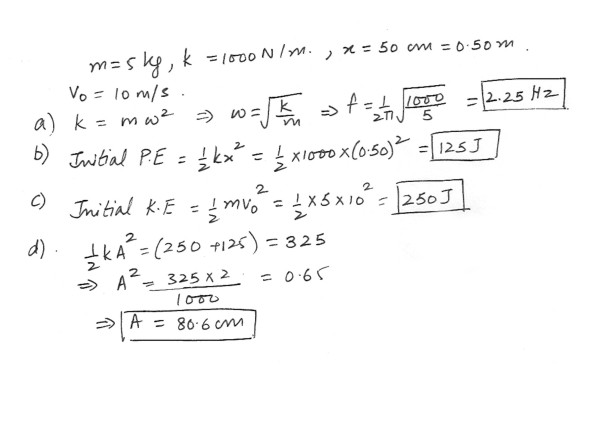 m = 5 kg, k = 1000 N/m. , x = 50 cm = 0.50 m.
V₀ = 10 m/s.
a) k = mω² ⇒ ω = √(k/m) ⇒ f = 1/2π √(1000/5) = 2.25 Hz
b) Initial P.E = 1/2 kx² = 1/2 × 1000 × (0.50)² = 125 J
c) Initial K.E = 1/2 mv₀² = 1/2 × 5 × 10² = 250 J
d). 1/2 kA² = (250 + 125) = 325
⇒ A² = 325 × 2 / 1000 = 0.65
⇒ A = 80.6 cm